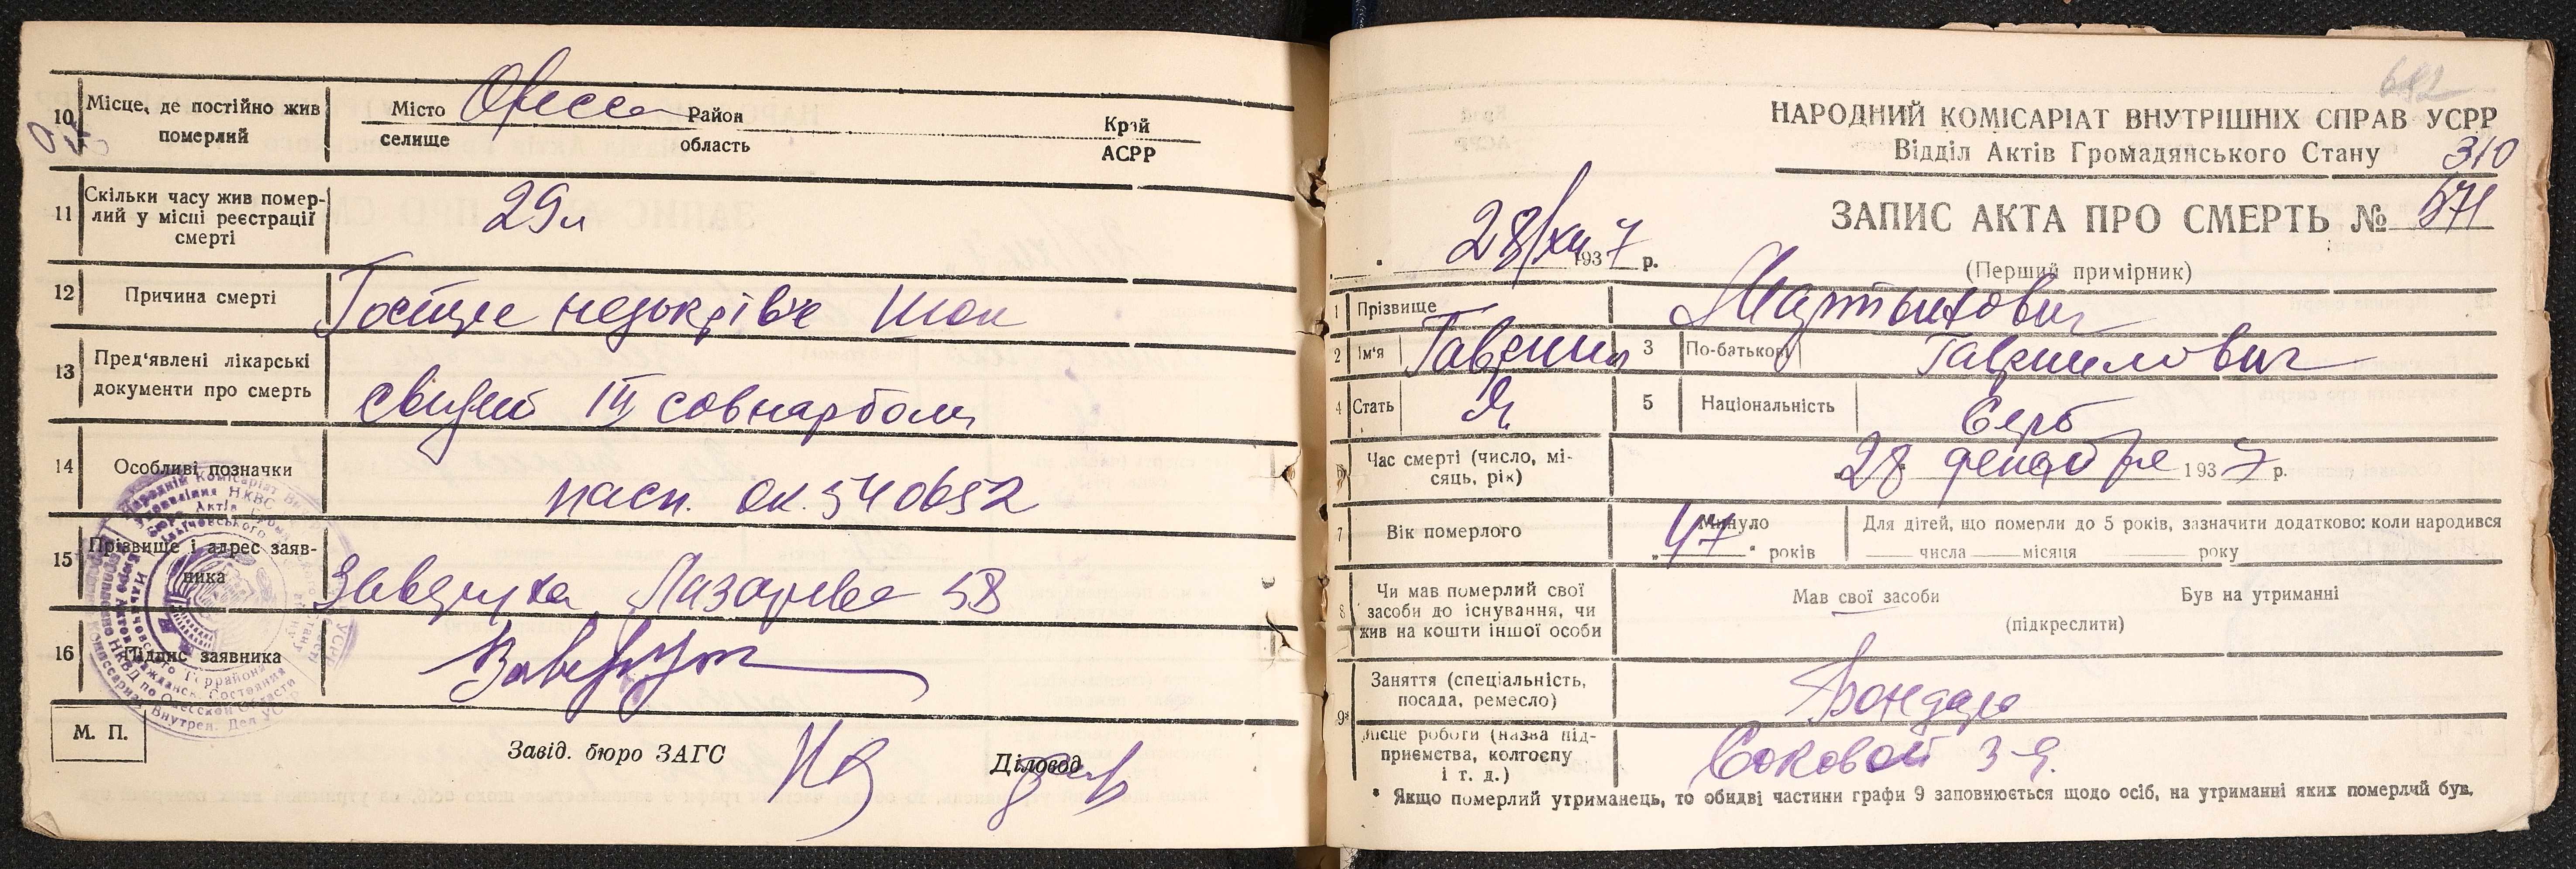 10 Місце, де постійно жив померлий
Місто Одесса Район Край
селище область АСРР
11 Скільки часу жив помер-
лий у місці реєстрації
смерті
29 л
12 Причина смерті
Гостре недокрівʼє Шок
13 Пред'явлені лікарські
документи про смерть
III совнарбол
14 Особливі позначки
пасп. ОК. 540652
15 Прізвище і адрес заяв-
ника
Лазарева 58
16 Підпис заявника
М. П.
Завід. бюро ЗАГС Діловод
692
НАРОДНИЙ КОМІСАРІАТ ВНУТРІШНІХ СПРАВ УСРР
Відділ Актів Громадянського Стану 310
ЗАПИС АКТА ПРО СМЕРТЬ №
28/XII 1937 р.
(Перший примірник)
1 Прізвище Мартынович
2 Ім'я Гавриил 3 По-батькові Гаврилович
4 Стать М 5 Національність Серб
6 Час смерті (число, мі-
сяць, рік)
28 декабря 1937 р.
7 Вік померлого
Минуло Для дітей, що померли до 5 років, зазначити додатково: коли народився
„ 47 " років числа місяця року
8 Чи мав померлий свої
засоби до існування, чи
жив на кошти іншої особи
Мав свої засоби Був на утриманні
(підкреслити)
9* Заняття (спеціальність,
посада, ремесло)
Бондарь
Місце роботи (назва під-
приємства, колгоспу
і т. д.)
Соковой З-д.
* Якщо померлий утриманець, то обидві частини графи 9 заповнюється щодо осіб, на утриманні яких померлий був.